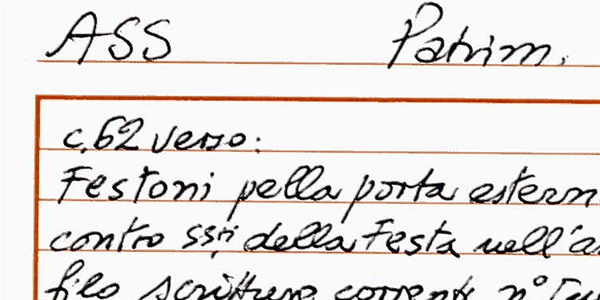 ASS Patrim.
c.62 verso:
Festoni pella porta estern
contro ssri della Festa nell'a
filo scritture corrente n°